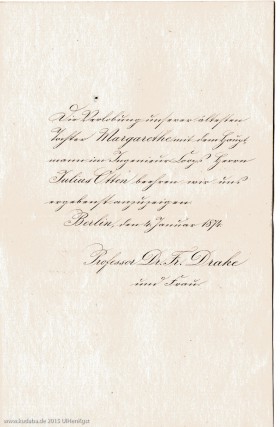 Die Verlobung unserer ältesten
Tochter Margarethe mit dem Haupt
mann im Ingenieur Corps Herrn
Julius Otten beehren wir uns
ergebenst anzuzeigen.
Berlin, den 4. Januar 1874.
Professor Dr. Fr. Drake
und Frau.
www.kuduba.de 2013 Uhlenifgur